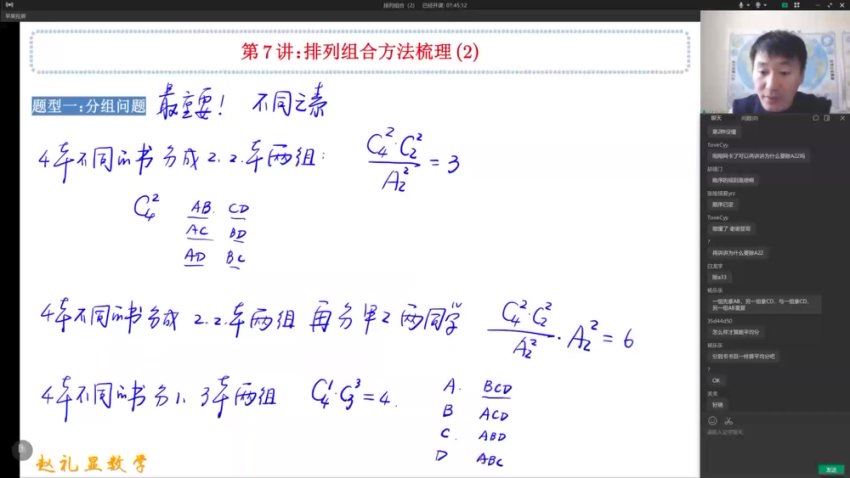 排列组合 (2) 已经开课: 01:45:12
第 7 讲:排列组合方法梳理 (2)
题型一:分组问题 最重要! 不同元素
4本不同的书分成 2.2.本两组: C₄²·C₂² / A₂² = 3
C₄² AB. CD
AC BD
AD BC
4本不同的书分成 2.2.本两组 再分甲乙两同学 C₄²·C₂² / A₂² · A₂² = 6
4本不同的书分 1. 3本两组 C₄¹·C₃³ = 4.
A. BCD
B ACD
C. ABD
D ABC
赵礼显数学
聊天 问题(0)
第2种没懂
ToveCyy
刚刚网卡了可以再讲讲为什么要除A22吗
顺序已定
ToveCyp
?
再讲讲为什么要除A22
白龙宇
除a33
杨乐乐
一组先拿AB、另一组拿CD、与一组拿CD、另一组AB重复
35d44d50
怎么样才算能平均分
杨乐乐
分到书书目一样算平均分吧
?
OK
好嘞
请输入文字聊天
发送